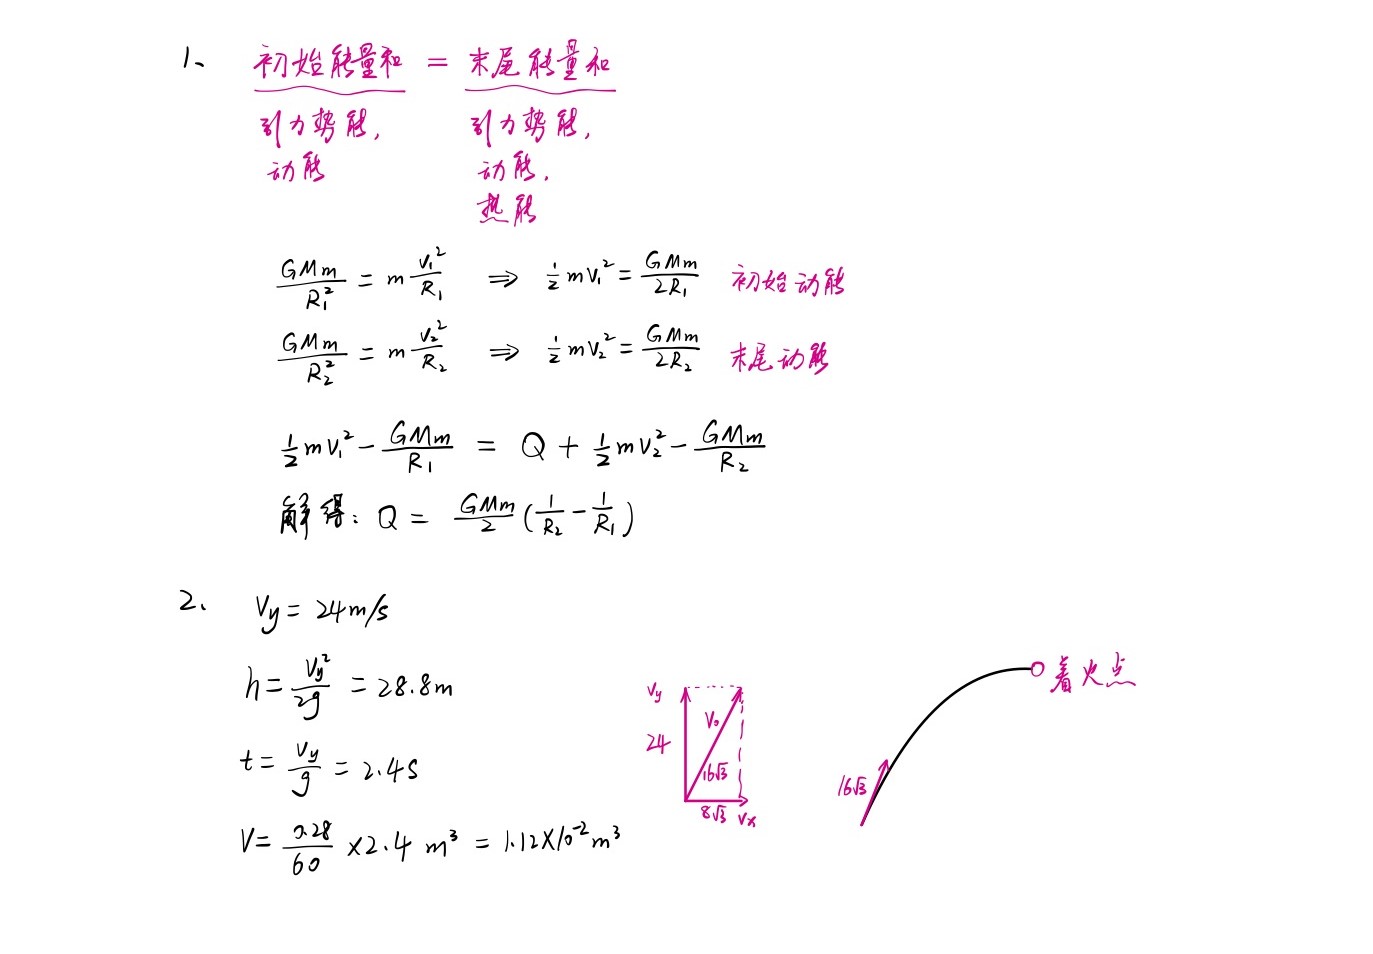 1、 初始能量和 = 末尾能量和
引力势能, 引力势能,
动能 动能,
热能
GMm/R₁² = m v₁²/R₁ ⇒ ½mv₁² = GMm/2R₁ 初始动能
GMm/R₂² = m v₂²/R₂ ⇒ ½mv₂² = GMm/2R₂ 末尾动能
½mv₁² − GMm/R₁ = Q + ½mv₂² − GMm/R₂
解得: Q = GMm/2 (1/R₂ − 1/R₁)
2、 Vy = 24m/s
h = Vy²/2g = 28.8m
t = Vy/g = 2.4s
V = 0.28/60 ×2.4 m³ = 1.12×10⁻² m³
Vy
24
V₀
16√3
8√3 Vx
着火点
16√3